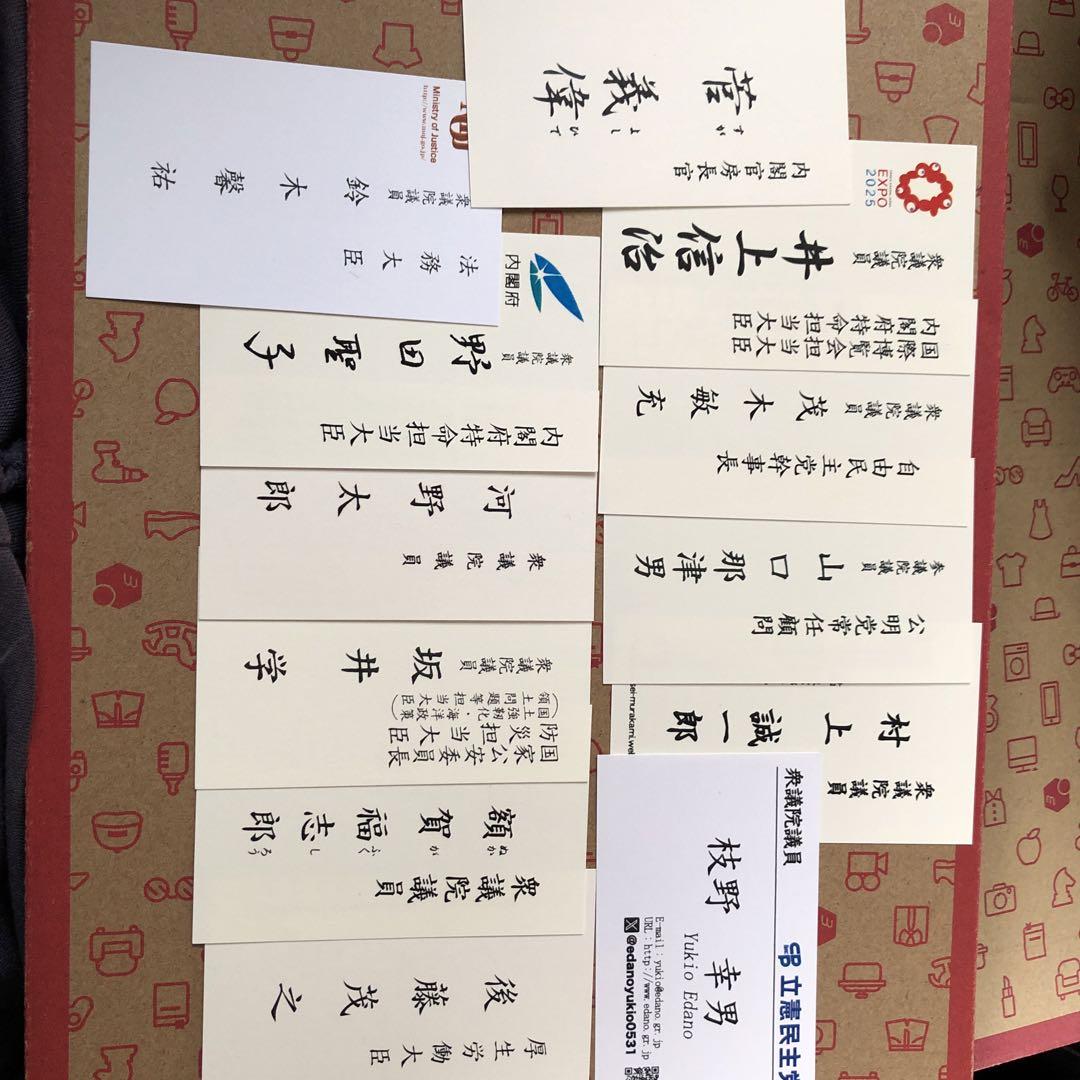 内閣官房長官
菅義偉
すが よし ひで
EXPO
2025
衆議院議員
井上信治
国際博覧会担当大臣
内閣府特命担当大臣
衆議院議員
茂木敏充
自由民主党幹事長
参議院議員
山口那津男
公明党常任顧問
村上誠一郎
衆議院議員
衆議院議員
枝野 幸男
Yukio Edano
立憲民主党
E-mail：yukio@edano.gr.jp
URL：http://www.edano.gr.jp
@edanoyukio0531
Ministry of Justice
http://www.moj.go.jp/
衆議院議員
鈴木馨祐
法務大臣
内閣府
衆議院議員
野田聖子
内閣府特命担当大臣
河野太郎
衆議院議員
衆議院議員
坂井学
国家公安委員長
防災担当大臣
国土強靭化・海洋政策
領土問題等担当大臣
額賀福志郎
ぬか が ふく し ろう
衆議院議員
後藤茂之
厚生労働大臣